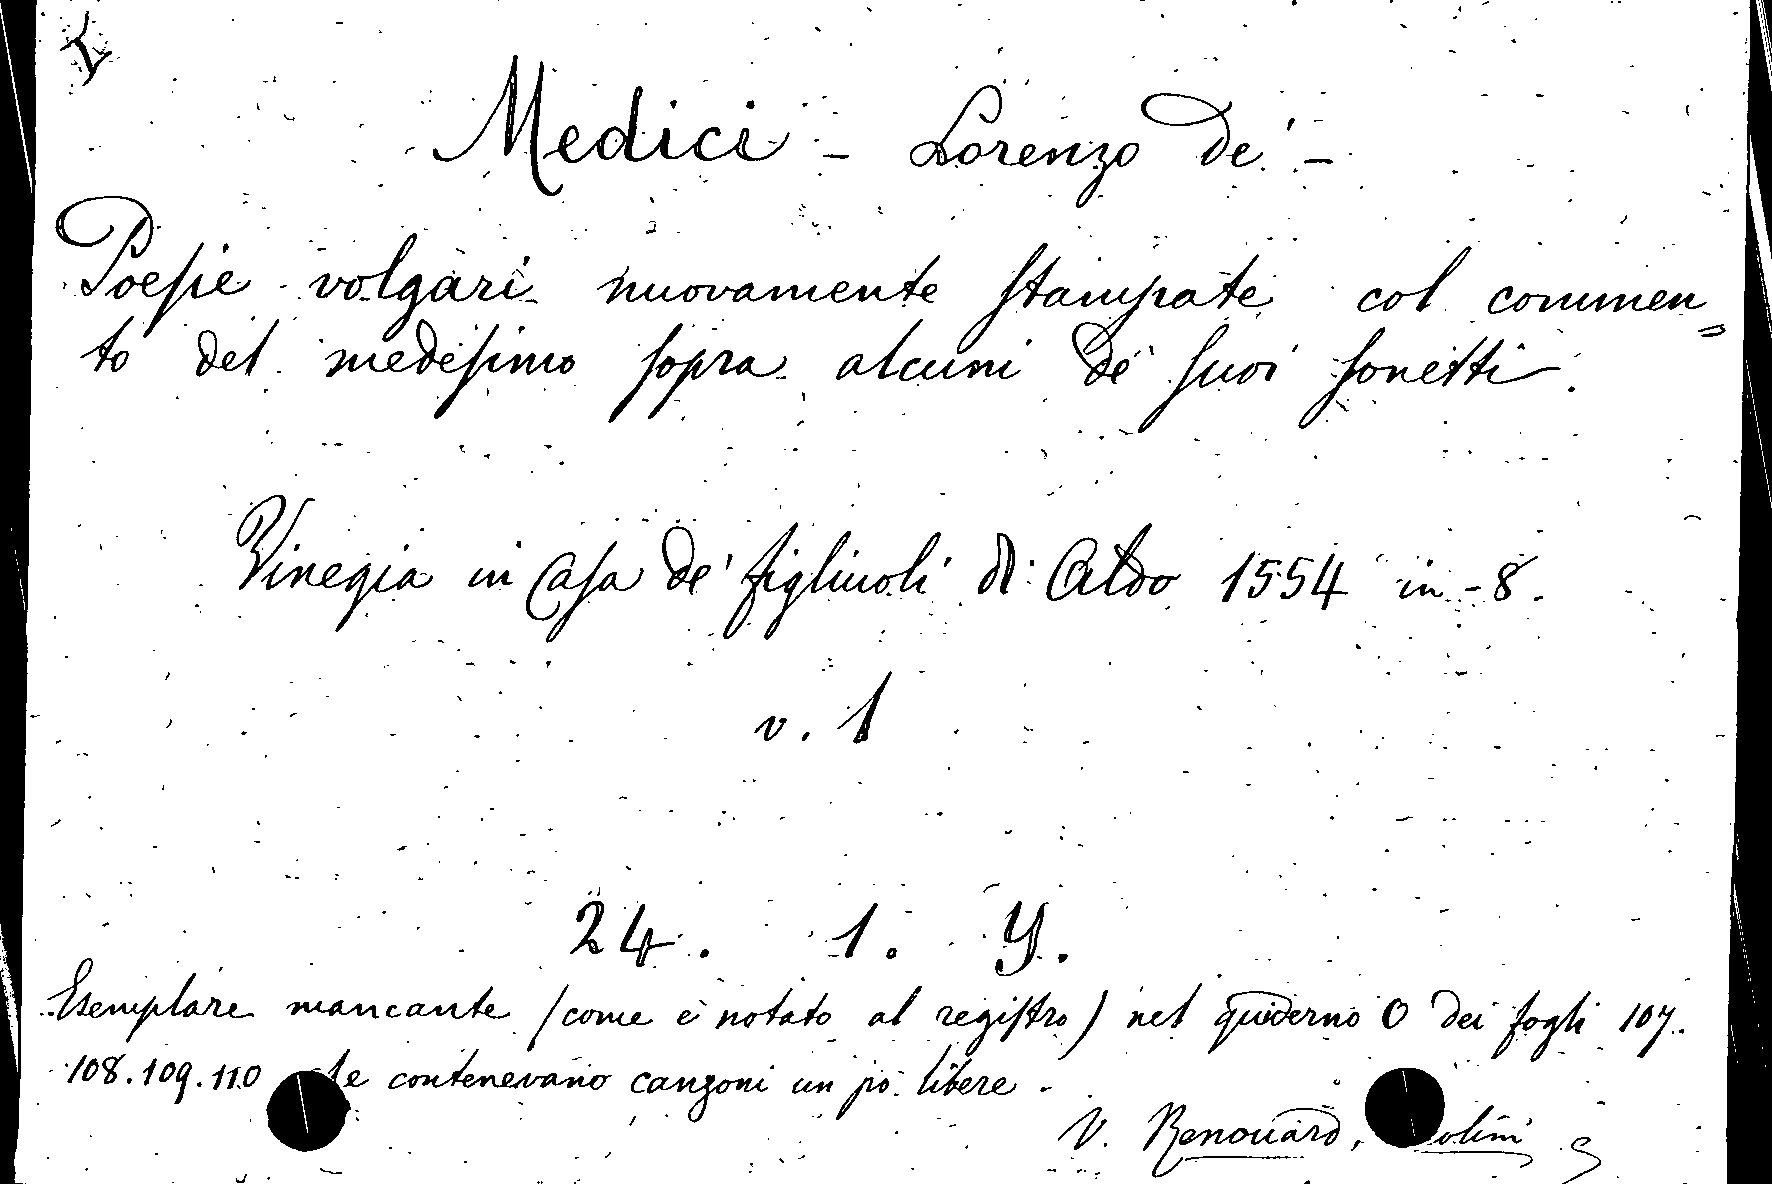 Medici - Lorenzo de' -
Poesie volgari nuovamente stampate col commen=
to del medesimo sopra alcuni de' suoi sonetti.
Vinegia in casa de' figliuoli di Aldo 1554 in-8.
v. 1
24. 1. Y.
Esemplare mancante (come è notato al registro) nel quiderno O dei fogli 107.
108.109.110 che contenevano canzoni un po' libere.
V. Renouard,